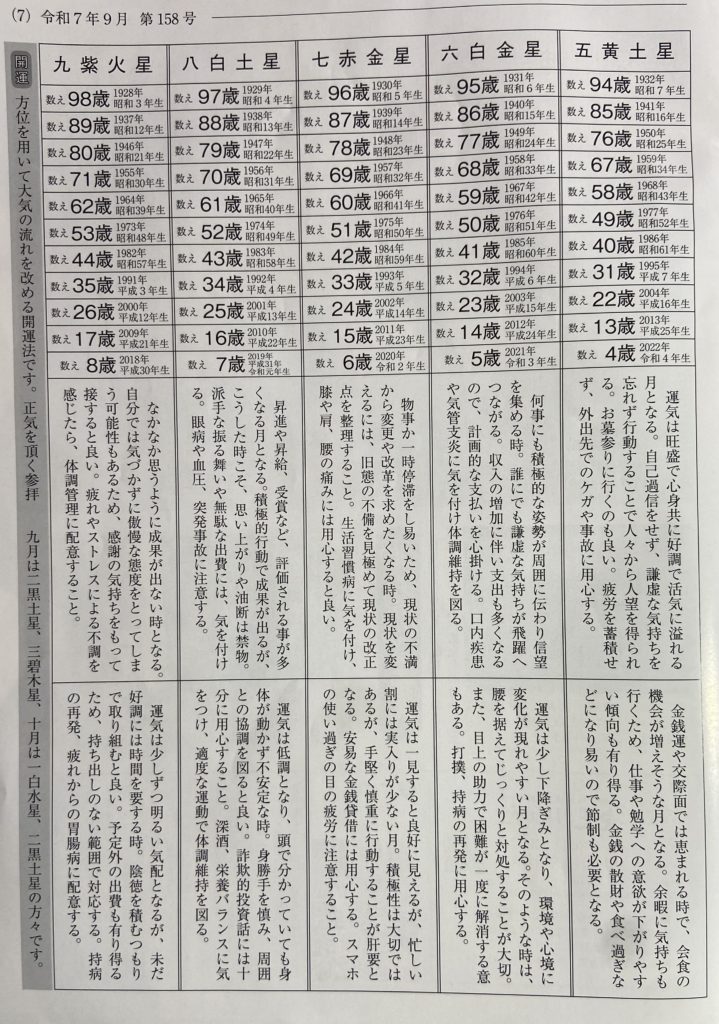 (7) 令和7年9月 第158号
五黄土星
数え94歳 1932年 昭和7年生
数え85歳 1941年 昭和16年生
数え76歳 1950年 昭和25年生
数え67歳 1959年 昭和34年生
数え58歳 1968年 昭和43年生
数え49歳 1977年 昭和52年生
数え40歳 1986年 昭和61年生
数え31歳 1995年 平成7年生
数え22歳 2004年 平成16年生
数え13歳 2013年 平成25年生
数え4歳 2022年 令和4年生
運気は旺盛で心身共に好調で活気に溢れる
月となる。自己過信をせず、謙虚な気持ちを
忘れず行動することで人々から人望を得られ
る。お墓参りに行くのも良い。疲労を蓄積せ
ず、外出先でのケガや事故に用心する。
金銭運や交際面では恵まれる時で、会食の
機会が増えそうな月となる。余暇に気持ちも
行くため、仕事や勉学への意欲が下がりやす
い傾向も有り得る。金銭の散財や食べ過ぎな
どになり易いので節制も必要となる。
六白金星
数え95歳 1931年 昭和6年生
数え86歳 1940年 昭和15年生
数え77歳 1949年 昭和24年生
数え68歳 1958年 昭和33年生
数え59歳 1967年 昭和42年生
数え50歳 1976年 昭和51年生
数え41歳 1985年 昭和60年生
数え32歳 1994年 平成6年生
数え23歳 2003年 平成15年生
数え14歳 2012年 平成24年生
数え5歳 2021年 令和3年生
何事にも積極的な姿勢が周囲に伝わり信望
を集める時。誰にでも謙虚な気持ちが飛躍へ
つながる。収入の増加に伴い支出も多くなる
ので、計画的な支払いを心掛ける。口内疾患
や気管支炎に気を付け体調維持を図る。
運気は少し下降ぎみとなり、環境や心境に
変化が現れやすい月となる。そのような時は、
腰を据えてじっくりと対処することが大切。
また、目上の助力で困難が一度に解消する意
もある。打撲、持病の再発に用心する。
七赤金星
数え96歳 1930年 昭和5年生
数え87歳 1939年 昭和14年生
数え78歳 1948年 昭和23年生
数え69歳 1957年 昭和32年生
数え60歳 1966年 昭和41年生
数え51歳 1975年 昭和50年生
数え42歳 1984年 昭和59年生
数え33歳 1993年 平成5年生
数え24歳 2002年 平成14年生
数え15歳 2011年 平成23年生
数え6歳 2020年 令和2年生
物事が一時停滞をし易いため、現状の不満
から変更や改革を求めたくなる時。現状を変
えるには、旧態の不備を見極めて現状の改正
点を整理すること。生活習慣病に気を付け、
膝や肩、腰の痛みには用心すると良い。
運気は一見すると良好に見えるが、忙しい
割には実入りが少ない月。積極性は大切では
あるが、手堅く慎重に行動することが肝要と
なる。安易な金銭貸借には用心する。スマホ
の使い過ぎの目の疲労に注意すること。
八白土星
数え97歳 1929年 昭和4年生
数え88歳 1938年 昭和13年生
数え79歳 1947年 昭和22年生
数え70歳 1956年 昭和31年生
数え61歳 1965年 昭和40年生
数え52歳 1974年 昭和49年生
数え43歳 1983年 昭和58年生
数え34歳 1992年 平成4年生
数え25歳 2001年 平成13年生
数え16歳 2010年 平成22年生
数え7歳 2019年 平成31年 令和元年生
昇進や昇給、受賞など、評価される事が多
くなる月となる。積極的行動で成果が出るが、
こうした時こそ、思い上がりや油断は禁物。
派手な振る舞いや無駄な出費には、気を付け
る。眼病や血圧、突発事故に注意する。
運気は低調となり、頭で分かっていても身
体が動かず不安定な時。身勝手を慎み、周囲
との協調を図ると良い。詐欺的投資話には十
分に用心すること。深酒、栄養バランスに気
をつけ、適度な運動で体調維持を図る。
九紫火星
数え98歳 1928年 昭和3年生
数え89歳 1937年 昭和12年生
数え80歳 1946年 昭和21年生
数え71歳 1955年 昭和30年生
数え62歳 1964年 昭和39年生
数え53歳 1973年 昭和48年生
数え44歳 1982年 昭和57年生
数え35歳 1991年 平成3年生
数え26歳 2000年 平成12年生
数え17歳 2009年 平成21年生
数え8歳 2018年 平成30年生
なかなか思うように成果が出ない時となる。
自分では気づかずに傲慢な態度をとってしま
う可能性もあるため、感謝の気持ちをもって
接すると良い。疲れやストレスによる不調を
感じたら、体調管理に配意すること。
運気は少しずつ明るい気配となるが、未だ
好調には時間を要する時。陰徳を積むつもり
で取り組むと良い。予定外の出費も有り得る
ため、持ち出しのない範囲で対応する。持病
の再発、疲れからの胃腸病に配意する。
開運 方位を用いて大気の流れを改める開運法です。正気を頂く参拝 九月は二黒土星、三碧木星、十月は一白水星、二黒土星の方々です。